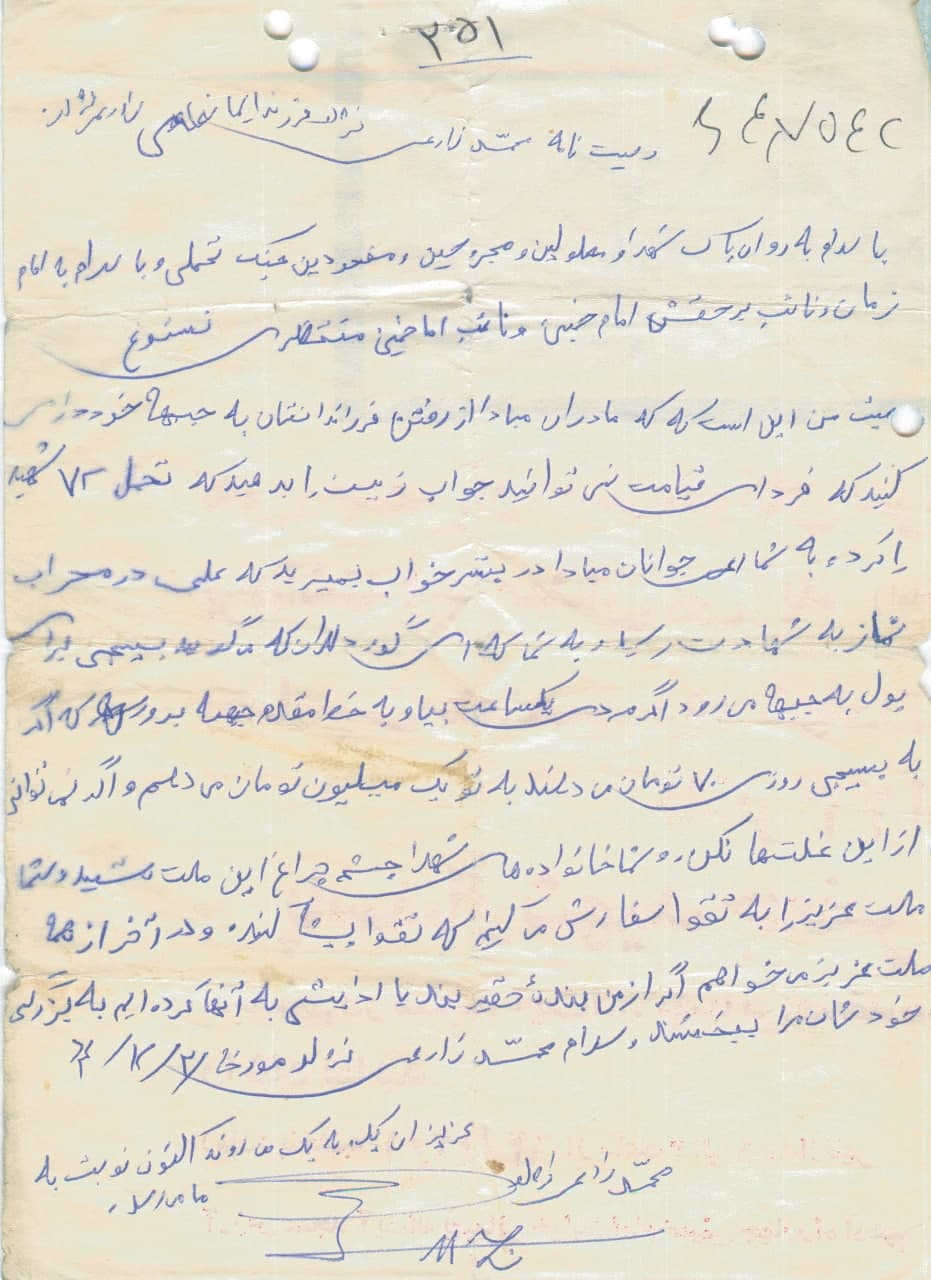 ۲۵۱
وصیت نامه محمد زارعی نژاد فرزند ایمانعلی
با سلام به روان پاک شهدا و معلولین و مجروحین و مفقودین جنگ تحملی و با سلام به امام
زمان و نائب برحقش امام خمینی و نائب امام خمینی منتظری
وصیت من این است که که مادران مبادا از رفتن فرزاندانتان به جبهها خودداری
کنید که فردای قیامت نمی توانید جواب زینب را بدهید که تحمل ۷۲ شهید
را کرده به شما ای جوانان مبادا در بستر خواب بمیرید که علی در محراب
نماز به شهادت رسید و به شما که ای که می گوید بسیجی برای
پول به جبهها می رود اگر مردی یکساعت بیا و به خط مقدم جبهه برو که اگر
به بسیجی روزی ۷۰ تومان می دهند به تو یک میلیون تومان می دهم و اگر نمی توانی
از این غلتها نکن و شما خانواده های شهدا چشم چراغ این ملت هستید و شما
ملت عزیز را به تقوا سفارش می کنم که تقوا پیشه کنید و در آخر از همه
ملت عزیز می خواهم اگر از من بندۀ حقیر بدی یا اذایتی به آنها کرده ایم به بزرگی
خودشان مرا ببخشند وسلام محمد زارعی نژاد مورخه
عزیزان یک به یک می روند اکنون نوبت به
ما می رسد
محمد زارعی نژاد